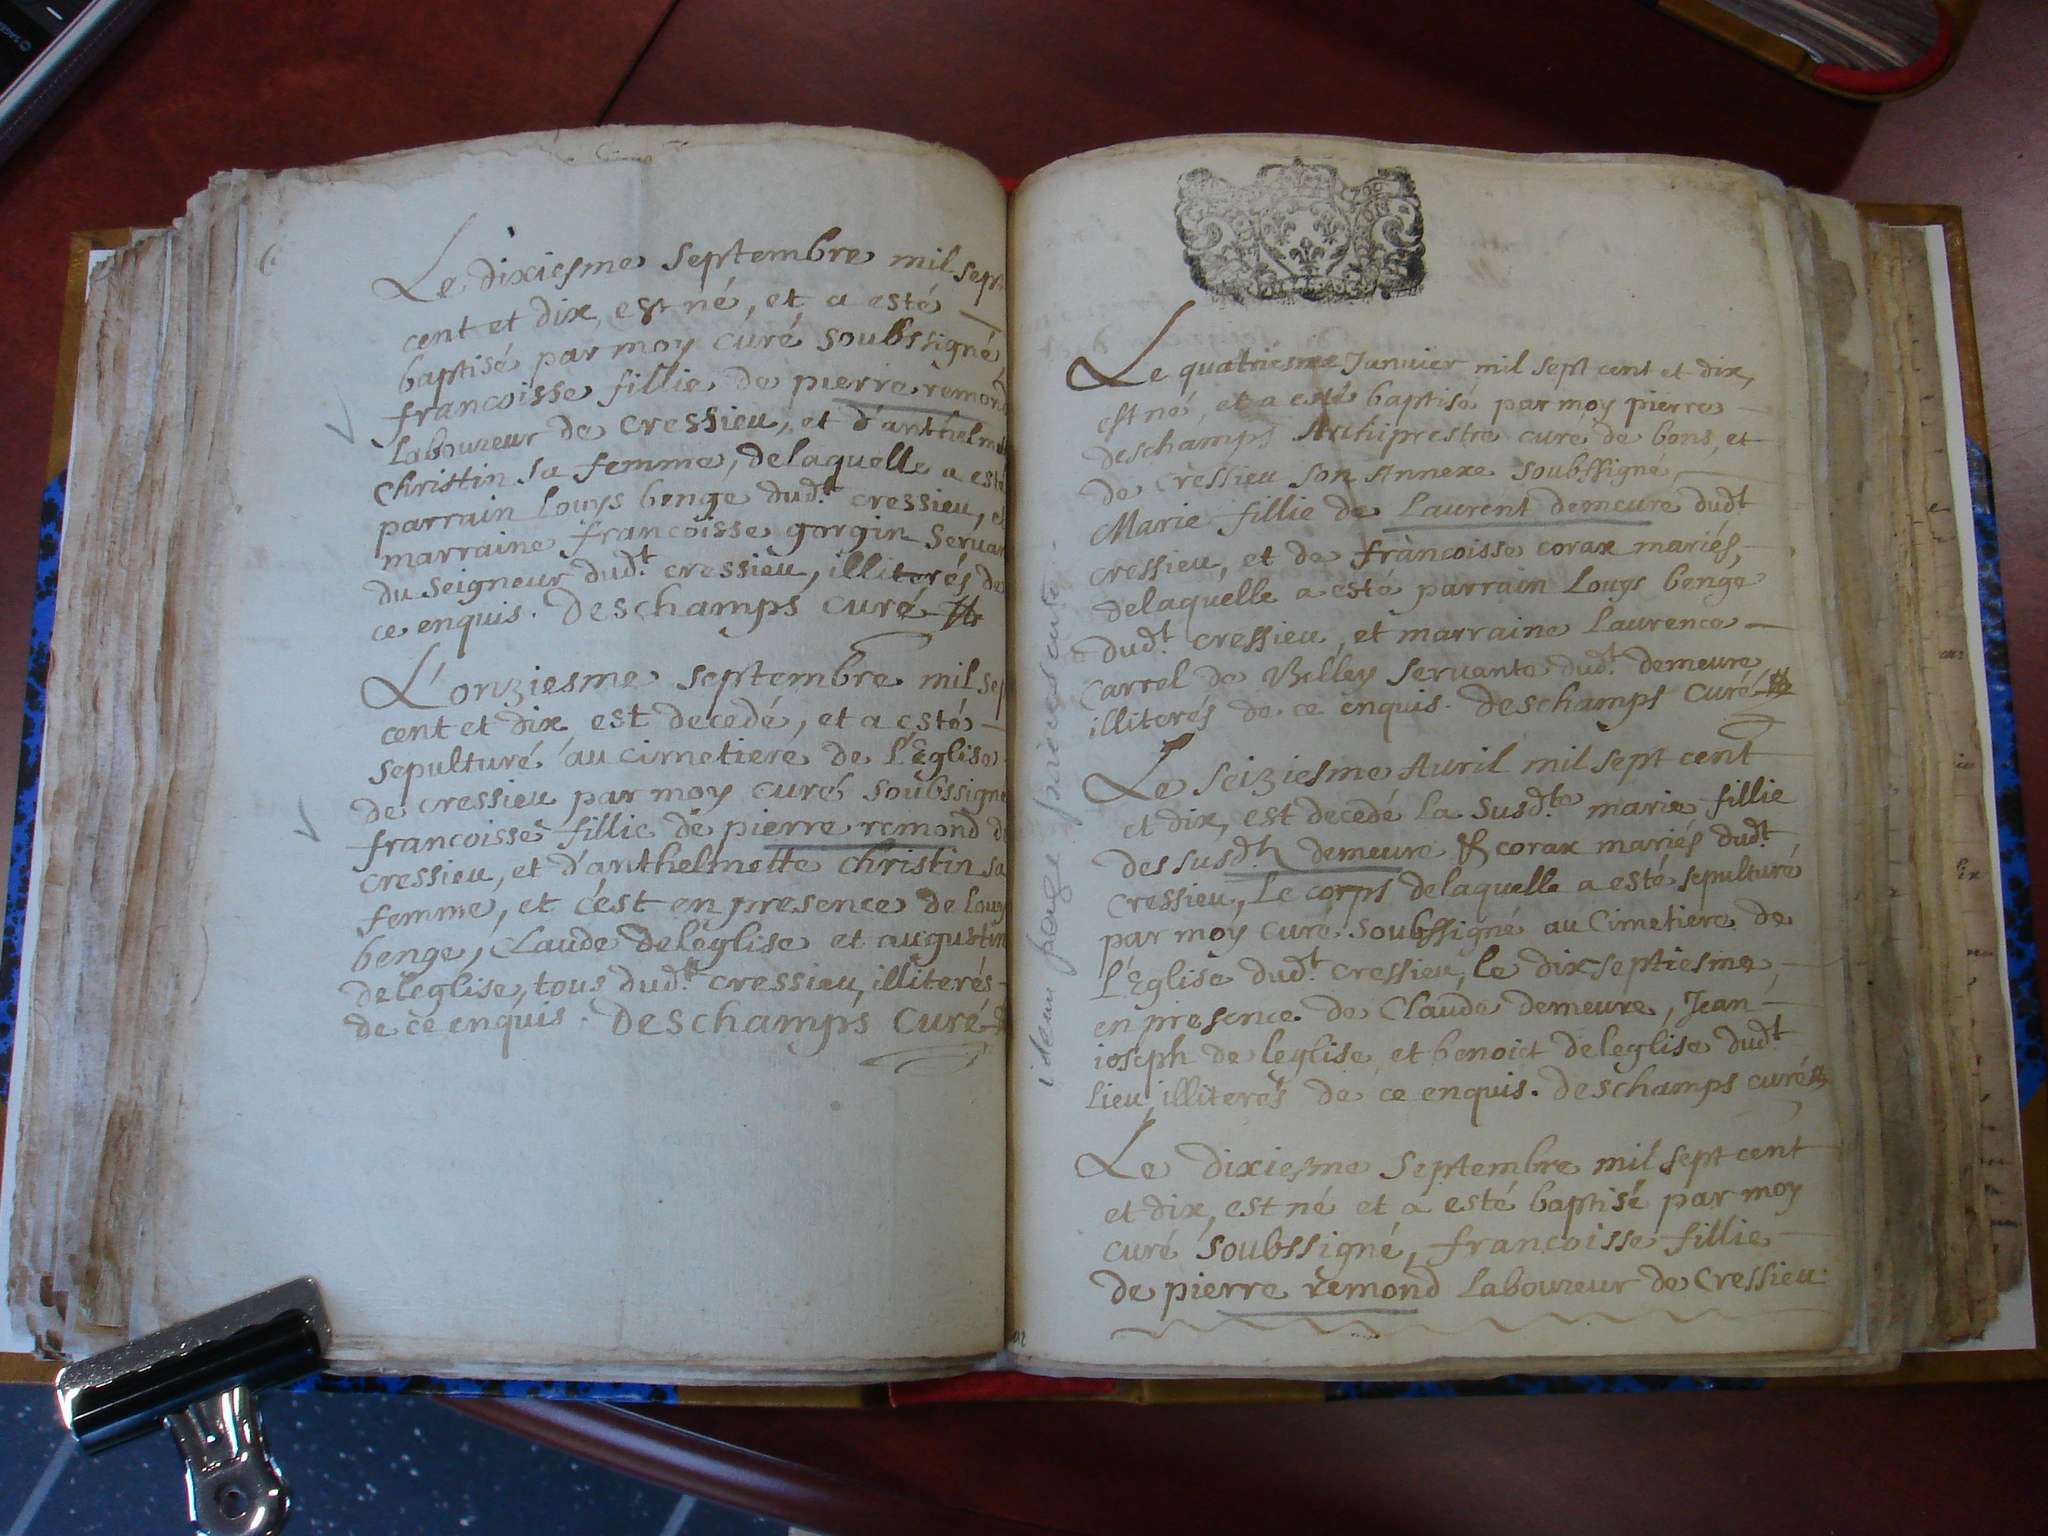 Le dixiesme septembre mil sept
cent et dix, est né, et, a esté
baptisé par moy curé soubssigné
francoisse fillie de pierre remond
Laboureur de cressieu, et d'anthelme
Christin sa femme, delaquelle a esté
parrain Louys benge dudt. cressieu, et
marraine francoisse gorgin servan
du seigneur dudt. cressieu, illiterés de
ce enquis. Deschamps curé
L'onziesme septembre mil sep
cent et dix est decedé, et a esté
sepulturé au cimetiere de l'Eglise
de cressieu par moy curé soubssigné
francoisse fillie de pierre remond d
cressieu, et d'anthelmette christin sa
femme, et c'est en presence de Louys
benge, Claude deleglise et augustin
deleglise, tous dudt. cressieu, illiterés
de ce enquis. Deschamps Curé
idem page
Le quatriesme Janvier mil sept cent et dix,
est né, et a esté baptisé par moy pierre
deschamps Archiprestre curé de bons, et
de cressieu son Annexe soubssigné,
Marie fillie de Laurent demeure dudt
cressieu, et de francoisse corax mariés,
delaquelle a esté parrain Louys benge
dudt. cressieu, et marraine Laurence
Carrel de Belley servante dudt. demeure,
illiterés de ce enquis. Deschamps Curé
Le seiziesme Avril mil sept cent
et dix, est decedé la susdte marie fillie
des susdts demeure & corax mariés dudt.
cressieu, Le corps delaquelle a esté sepulturé
par moy curé soubssigné au Cimetiere de
l'Eglise dudt. cressieu, le dixseptiesme,
en presence de Claude demeure, Jean
ioseph de leglise et benoict deleglise dudt
lieu, illiterés de ce enquis. deschamps curé
Le dixiesme septembre mil sept cent
et dix, est né et a esté baptisé par moy
curé soubssigné, francoisse fillie
de pierre remond Laboureur de Cressieu